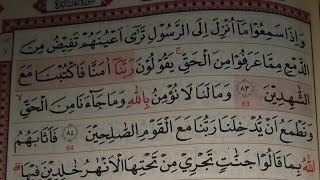 وَاِذَا سَمِعُوْا مَاۤ اُنْزِلَ اِلَى الرَّسُوْلِ تَرٰۤى اَعْيُنَهُمْ تَفِيْضُ مِنَ
الدَّمْعِ مِمَّا عَرَفُوْا مِنَ الْحَقِّۚ يَقُوْلُوْنَ رَبَّنَاۤ اٰمَنَّا فَاكْتُبْنَا مَعَ
الشّٰهِدِيْنَ ٨٣ 83 وَمَا لَنَا لَا نُؤْمِنُ بِاللّٰهِ وَمَا جَآءَنَا مِنَ الْحَقِّۙ
وَنَطْمَعُ اَنْ يُّدْخِلَنَا رَبُّنَا مَعَ الْقَوْمِ الصّٰلِحِيْنَ ٨٤ 84 فَاَثَابَهُمُ
اللّٰهُ بِمَا قَالُوْا جَنّٰتٍ تَجْرِيْ مِنْ تَحْتِهَا الْاَنْهٰرُ خٰلِدِيْنَ فِيْهَاۗ